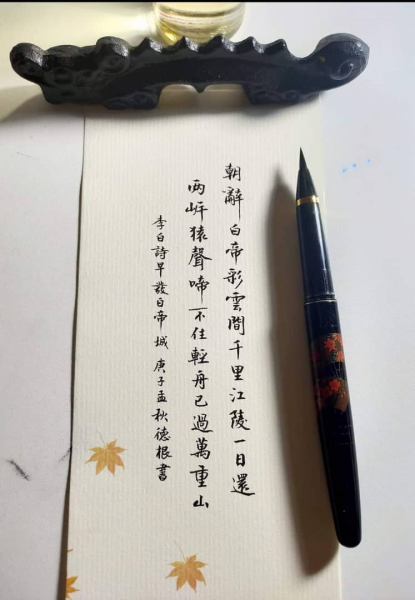 朝辭白帝彩雲間千里江陵一日還
兩岍猿聲啼不住輕舟已過萬重山
李白詩早發白帝城 庚子孟秋德根書